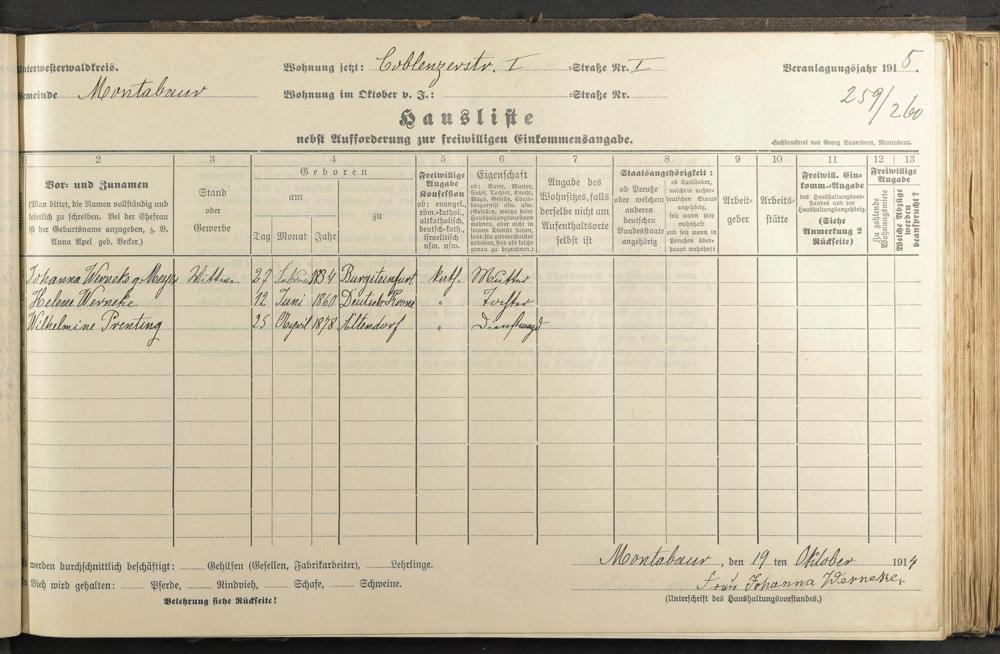 Unterwesterwaldkreis. Wohnung jetzt: Coblenzerstr. I Straße Nr. I Veranlagungsjahr 1915.
Gemeinde Montabaur Wohnung im Oktober v. J.: Straße Nr.
259/260
Hausliste
nebst Aufforderung zur freiwilligen Einkommensangabe.
Buchdruckerei von Georg Sauerborn, Montabaur.
2 3 4 5 6 7 8 9 10 11 12 13
Vor- und Zunamen
(Man bittet, die Namen vollständig und
leserlich zu schreiben. Bei der Ehefrau
ist der Geburtsname anzugeben, z. B.
Anna Apel geb. Becker.)
Stand
oder
Gewerbe
Geboren
am
zu
Tag Monat Jahr
Freiwillige
Angabe
Konfession
ob: evangel.,
röm.-kathol.,
altkatholisch,
deutsch-kath.,
israelitisch
usw. usw.
Eigenschaft
ob: Vater, Mutter,
Sohn, Tochter, Knecht,
Angabe des
Wohnsitzes, falls
derselbe nicht am
Aufenthaltsorte
selbst ist
Staatsangehörigkeit:
ob Preuße
oder welchem
anderen
deutschen
Bundesstaate
angehörig
ob Ausländer,
welchem außer-
deutschen Staate
angehörig,
seit wann hier
wohnhaft
und seit wann in
Preußen über-
haupt wohnhaft
Arbeit-
geber
Arbeits-
stätte
Freiwill. Ein-
komm.-Angabe
des Haushaltungsvor-
standes und der
Haushaltungsangehörig.
(Siehe
Anmerkung 2
Rückseite)
Freiwillige
Angabe
Zu zahlende
Wohnungsmiete
Welche Abzüge
werden
beansprucht?
Johanna Werneke g. Meyer Wittwe 27 Februar 1834 Burgsteinfurt kath. Mutter
Helene Werneke 12 Juni 1860 Deutsch Krone " Tochter
Wilhelmine Prenting 25 April 1878 Altendorf " Dienstmagd
Es werden durchschnittlich beschäftigt: Gehilfen (Gesellen, Fabrikarbeiter), Lehrlinge.
An Vieh wird gehalten: Pferde, Rindvieh, Schafe, Schweine.
Belehrung siehe Rückseite!
Montabaur, den 19 ten Oktober 1914
Frau Johanna Werneke.
(Unterschrift des Haushaltungsvorstandes.)